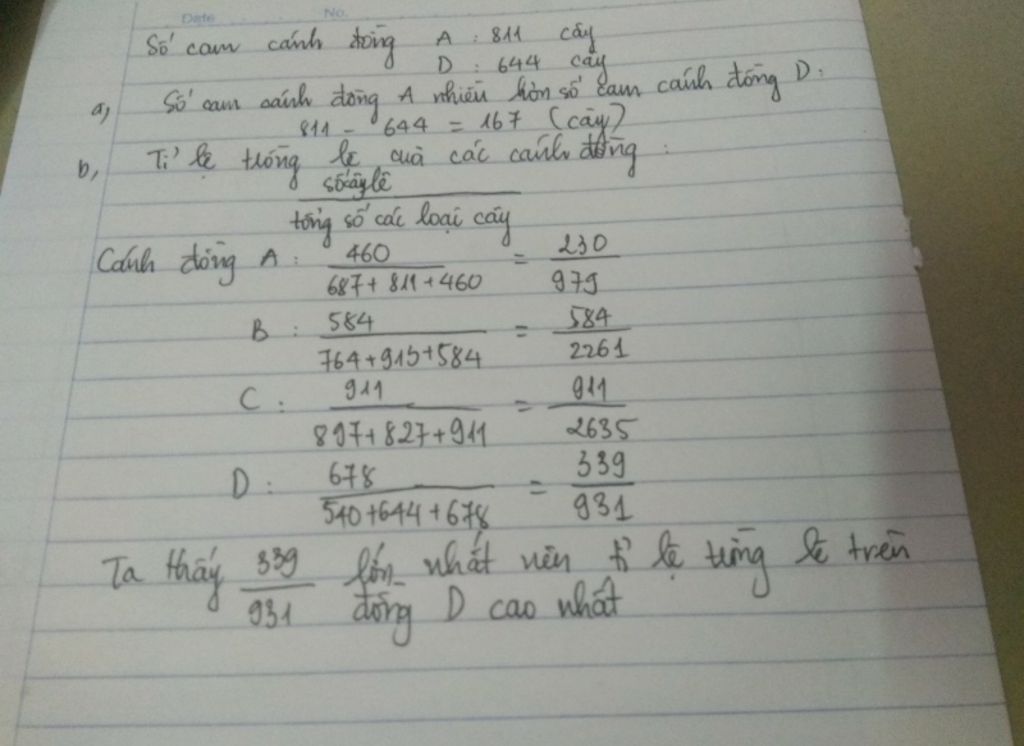 Date No.
Số cam cánh đồng A : 811 cây
D : 644 cây
a, Số cam cánh đồng A nhiều hơn số cam cánh đồng D :
811 - 644 = 167 (cây)
b, Tỉ lệ trồng lê cuả các cánh đồng :
số cây lê
tổng số các loại cây
Cánh đồng A : 460 / 687 + 811 + 460 = 230 / 979
B : 584 / 764 + 913 + 584 = 584 / 2261
C : 911 / 897 + 827 + 911 = 911 / 2635
D : 678 / 540 + 644 + 678 = 339 / 931
Ta thấy 339 / 931 lớn nhất nên tỉ lệ trồng lê trên
đồng D cao nhất